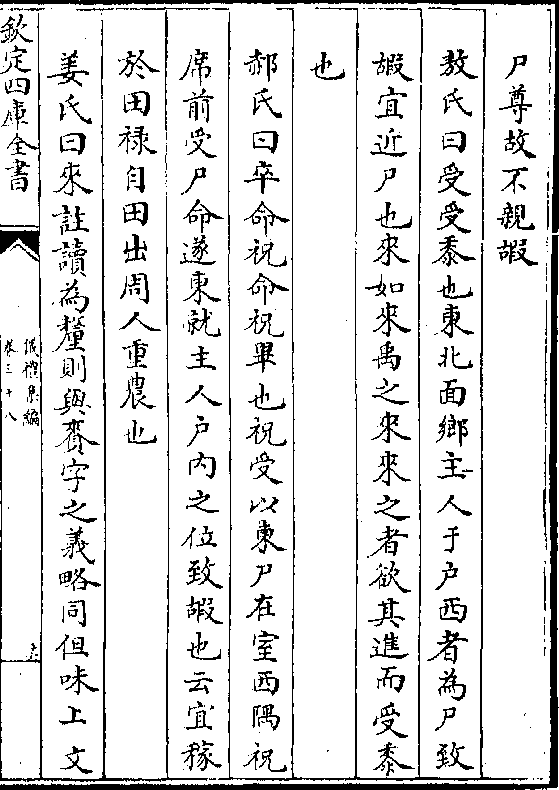 尸尊故不親嘏
敖氏曰受受黍也東北面鄉主人于户西者為尸致
嘏宜近尸也來如來禹之來來之者欲其進而受黍
也
郝氏曰卒命祝命祝畢也祝受以東尸在室西隅祝
席前受尸命遂東就主人户内之位致嘏也云宜稼
於田禄自田出周人重農也
姜氏曰來註讀為釐則與賚字之義略同但味上文
欽定四庫全書
儀禮集編
卷三十八